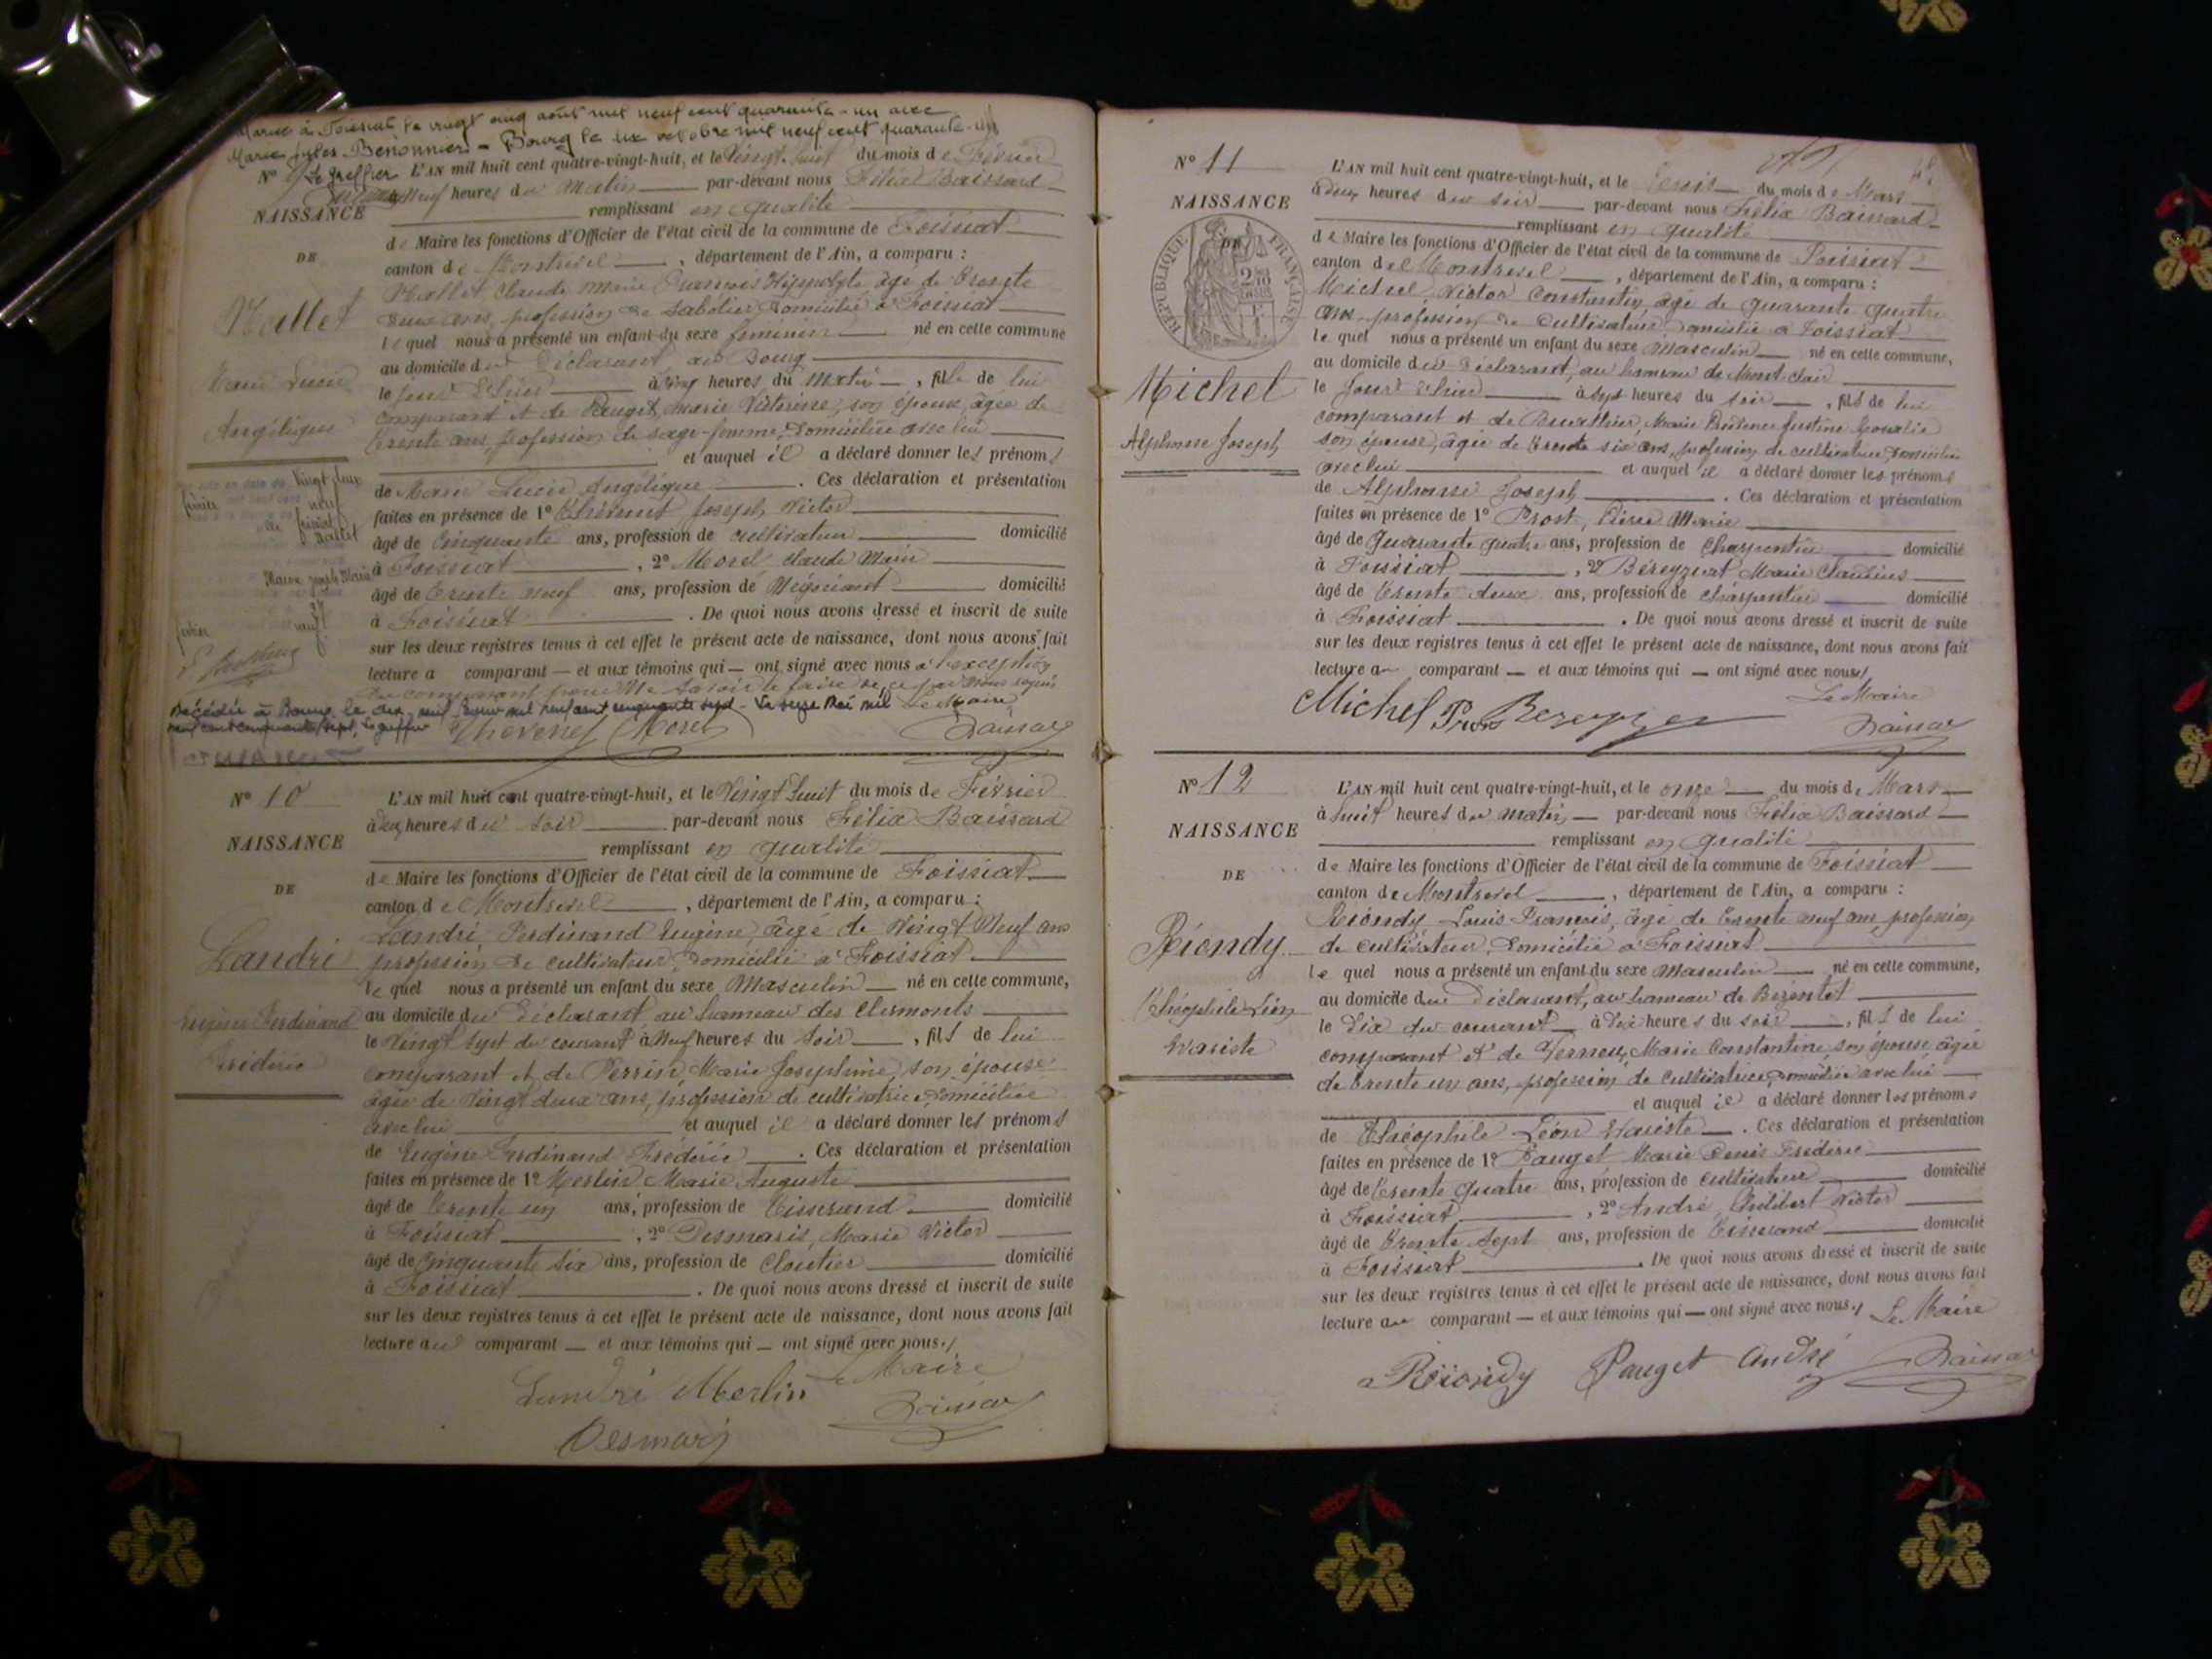 Marie Jules Benonnier - Bourg le dix octobre mil neuf cent quarante-un
Le Greffier
N° 9
L'AN mil huit cent quatre-vingt-huit, et le Vingt huit du mois de Février
à Neuf heures du matin par-devant nous Félix Baissard
remplissant en qualité
NAISSANCE
DE
Mallet
Marie Lucie
Angélique
de Maire les fonctions d'Officier de l'état civil de la commune de Foissiat
canton de Montrevel, département de l'Ain, a comparu :
Mallet Claude Marie François Hippolyte âgé de trente
deux ans, profession de sabotier domicilié à Foissiat
lequel nous a présenté un enfant du sexe féminin né en cette commune
au domicile du déclarant au Bourg
le jour d'hier à cinq heures du matin, fille de lui
comparant et de Pauget, Marie Victorine, son épouse, âgée de
trente ans, profession de sage-femme, domiciliée avec lui
et auquel il a déclaré donner les prénoms
de Marie Lucie Angélique. Ces déclaration et présentation
faites en présence de 1° Thévenet Joseph Victor
âgé de Cinquante ans, profession de cultivateur domicilié
à Foissiat, 2° Morel Claude Marie
âgé de trente neuf ans, profession de Négociant domicilié
à Foissiat. De quoi nous avons dressé et inscrit de suite
sur les deux registres tenus à cet effet le présent acte de naissance, dont nous avons fait
lecture a comparant — et aux témoins qui — ont signé avec nous à l'exception
Le Maire
Thevenet Morel Baissard
N° 10
NAISSANCE
DE
Landri
Eugène Ferdinand
Frédéric
L'AN mil huit cent quatre-vingt-huit, et le Vingt huit du mois de Février
à deux heures du soir par-devant nous Félix Baissard
remplissant en qualité
de Maire les fonctions d'Officier de l'état civil de la commune de Foissiat
canton de Montrevel, département de l'Ain, a comparu :
Landri Ferdinand Eugène, âgé de Vingt Neuf ans
profession de cultivateur, domicilié à Foissiat
lequel nous a présenté un enfant du sexe Masculin né en cette commune,
au domicile du déclarant au hameau des Clermonts
le Vingt sept du courant à Neuf heures du soir, fils de lui
comparant et de Perrin, Marie Joséphine, son épouse
âgée de Vingt deux ans, profession de cultivatrice, domiciliée
avec lui et auquel il a déclaré donner les prénoms
de Eugène Ferdinand Frédéric. Ces déclaration et présentation
faites en présence de 1° Merlin Marie Auguste
âgé de trente un ans, profession de Tisserand domicilié
à Foissiat, 2° Desmaris, Marie Victor
âgé de Cinquante six ans, profession de Cloutier domicilié
à Foissiat. De quoi nous avons dressé et inscrit de suite
sur les deux registres tenus à cet effet le présent acte de naissance, dont nous avons fait
lecture au comparant — et aux témoins qui — ont signé avec nous./
Le Maire
Landri Merlin Baissard
Desmaris
N° 11
NAISSANCE
DE
RÉPUBLIQUE FRANÇAISE
Michel
Alphonse Joseph
L'AN mil huit cent quatre-vingt-huit, et le trois du mois de Mars
à deux heures du soir par-devant nous Félix Baissard
remplissant en qualité
de Maire les fonctions d'Officier de l'état civil de la commune de Foissiat
canton de Montrevel, département de l'Ain, a comparu :
Michel Victor Constantin âgé de quarante quatre
ans, profession de Cultivateur, domicilié à Foissiat
lequel nous a présenté un enfant du sexe Masculin né en cette commune,
au domicile du déclarant, au hameau de Mont-clair
le jour d'hier à sept heures du soir, fils de lui
comparant et de Marie Prudence Justine
son épouse, âgée de trente six ans, profession de cultivatrice, domiciliée
avec lui et auquel il a déclaré donner les prénoms
de Alphonse Joseph. Ces déclaration et présentation
faites en présence de 1° Prost, Pierre Marie
âgé de Quarante quatre ans, profession de Charpentier domicilié
à Foissiat, 2° Béreyziat Marie Claudius
âgé de trente deux ans, profession de charpentier domicilié
à Foissiat. De quoi nous avons dressé et inscrit de suite
sur les deux registres tenus à cet effet le présent acte de naissance, dont nous avons fait
lecture au comparant — et aux témoins qui — ont signé avec nous./
Le Maire
Michel Prost Bereyziat Baissard
N° 12
NAISSANCE
DE
Réondy
Théophile Léon
Evariste
L'AN mil huit cent quatre-vingt-huit, et le onze du mois de Mars
à huit heures du matin, par-devant nous Félix Baissard
remplissant en qualité
de Maire les fonctions d'Officier de l'état civil de la commune de Foissiat
canton de Montrevel, département de l'Ain, a comparu :
Réondy Louis François, âgé de trente neuf ans, profession
de cultivateur, domicilié à Foissiat
lequel nous a présenté un enfant du sexe Masculin né en cette commune,
au domicile du déclarant, au hameau de
le dix du courant à dix heures du soir, fils de lui
comparant et de Verneu, Marie Constantine, son épouse âgée
de trente un ans, profession de cultivatrice, domiciliée avec lui
et auquel il a déclaré donner les prénoms
de Théophile Léon Evariste. Ces déclaration et présentation
faites en présence de 1° Pauget Marie Denis Frédéric
âgé de trente quatre ans, profession de cultivateur domicilié
à Foissiat, 2° André Philibert Victor
âgé de trente sept ans, profession de Tisserand domicilié
à Foissiat. De quoi nous avons dressé et inscrit de suite
sur les deux registres tenus à cet effet le présent acte de naissance, dont nous avons fait
lecture au comparant — et aux témoins qui — ont signé avec nous./ Le Maire
Réondy Pauget André Baissard